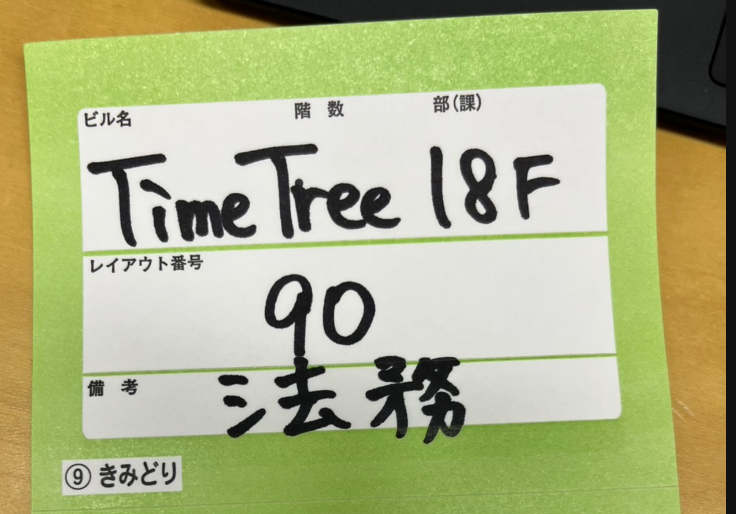 ビル名 階数 部(課)
TimeTree 18F
レイアウト番号
90
備考
法務
⑨ きみどり